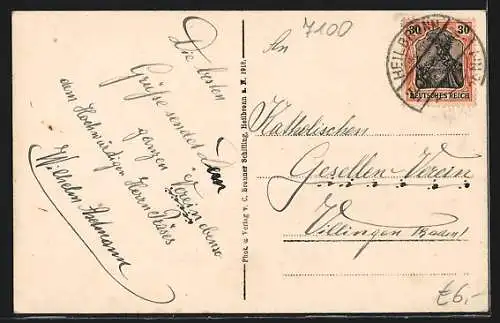 7100
Die besten
Grüße sendet dem
ganzen Verein ebenso
dem Hochwürdigen Herrn Präses
Wilhelm
Phot. u. Verlag v. C. Brunner Schilling, Heilbronn a. N. 1917.
An
Katholischen
Gesellen-Verein
Villingen Baden
30 30
DEUTSCHES REICH
HEILBRONN
£6,-